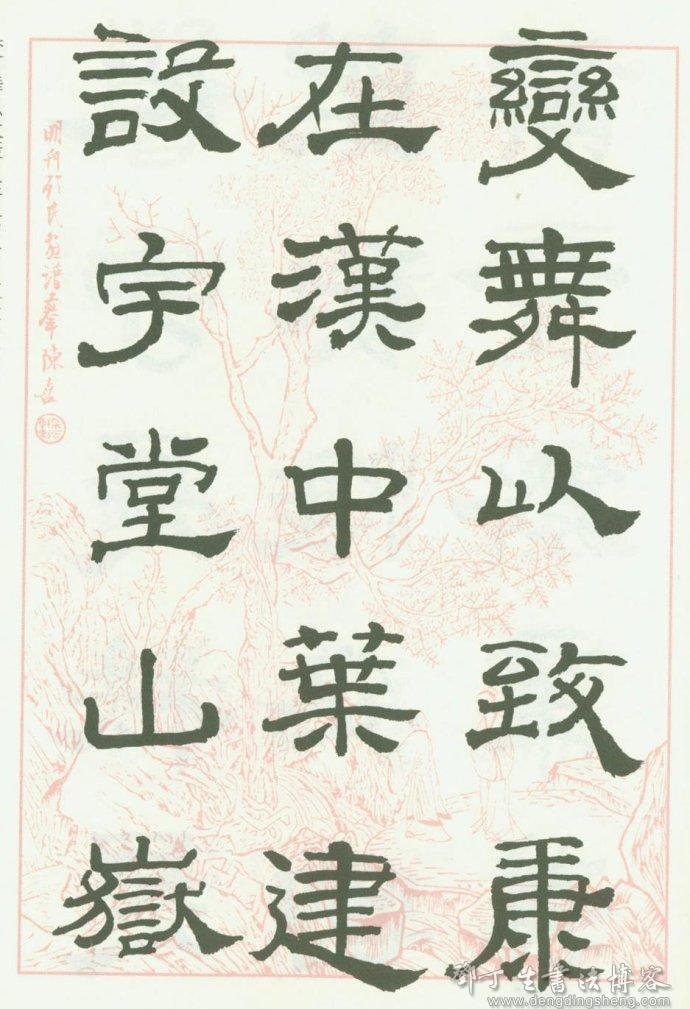 變舞以致康
在漢中葉建
設宇堂山嶽
鄧丁生書法博客
www.dengdingsheng.com